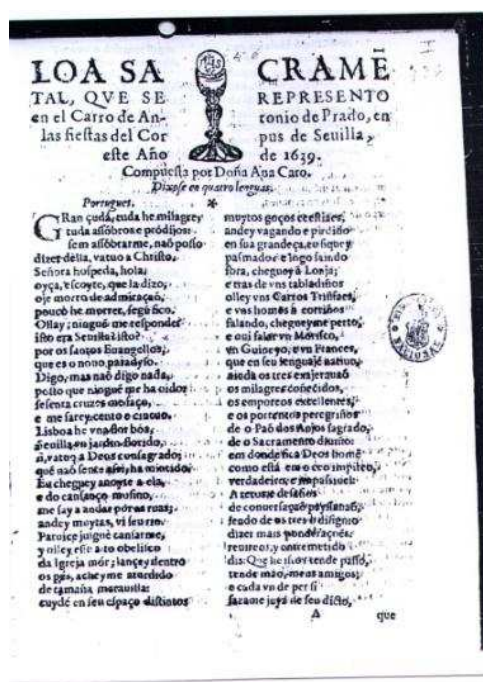 LOA SA CRAMẼ
TAL, QVE SE REPRESENTO
en el Carro de An- tonio de Prado, en
las fiestas del Cor pus de Seuilla,
este Año de 1639.
Compuesta por Doña Ana Caro.
Dixose en quatro lenguas.
Portugues.
GRan çudà, tuda he milagrey
tuda assõbros e prodijos:
sem assõbrarme, naõ posso
dizer della, vatuo a Christo,
Señora hospeda, hola;
oyça, escoyte, que la dizo,
oje morro de admiraçaõ,
pouco he morrer, segũ fico,
Ollay; ninguẽ me responde?
isto era Seuilla? isto?
por os santos Euangelios,
que es o nouo paraӱso.
Digo, mas naõ digo nada,
posto que ninguẽ me ha oido;
sesenta cruzes me faço,
e me sarey cento o cincuo.
Lisboa he vna flor boa,
Seuilla, un jardin florido,
e do cansanço mofino,
me say a andar por as ruas;
andey muytas, vi seu rio.
Paroice juiguè cansarme,
y olley este a to obelisco
da Igreja mòr; lançey dentro
os pès, acheyme aturdido
de tamaña marauilla:
cuydè en seu espaço distintos
muytos goços celestiaes,
andey vagando e pirdiño
en sua grandeça, eu fiquey
pasmado: e logo saindo
fora, cheguoy à Lonja;
e tras de vns tabladiños
olley vns Carros Triũfaes,
e vns homẽs à corriños
falando, chegueyme perto,
e oui falar vn Morisco,
vn Guineyo, e vn Frances,
que en seu lenguaje natiuo,
ainda os tres enjeraua
os milagres conecidos,
os emporeos excellentes,
e os portentos peregriños
de o Paõ dos Anjos sagrado,
de o Sacramento diuino:
em donde fica Deos homẽ
como està em o ceo impireo,
verdadeiro, e impassiuel:
A terure desafios
de conuersaçaõ
seudo de os tres o disignio
dizer mais ponderaçoẽs.
tende maõ, meus amigos;
e cada vn de per si
façame juyz de seu dicto,
A
que